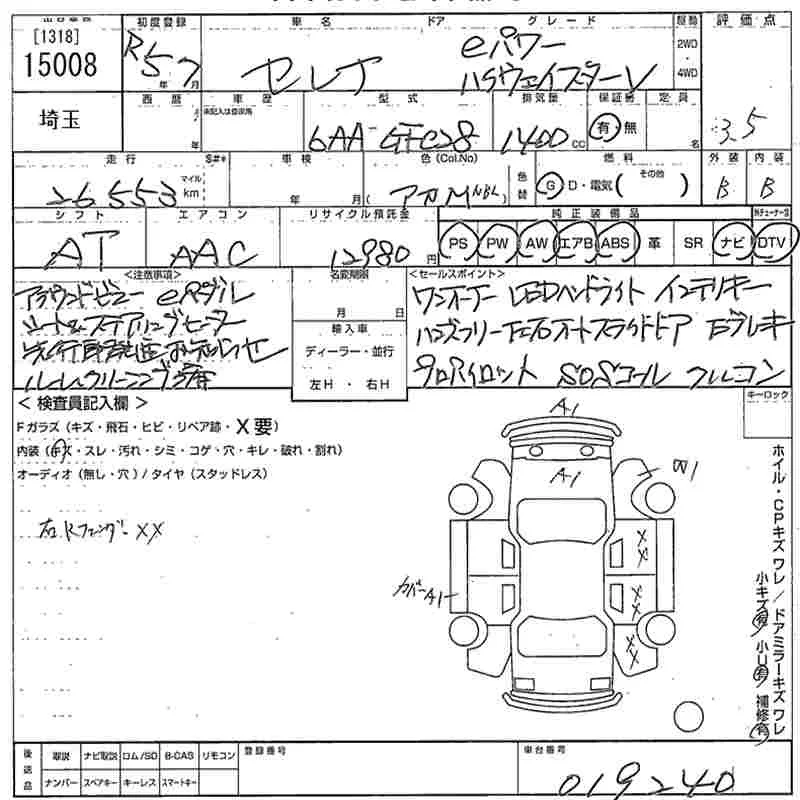 出品番号 初度登録 車名 ドア グレード 駆動 評価点
[1318]
15008
R5 7
年 月
セレナ
eパワー
ハイウェイスターV
2WD
・
4WD
3.5
埼玉
西暦 車歴 型式 排気量 保証書 定員
未記入は自家用
年
6AA-GFC28
1400 cc
有・無
名
走行 S#* 車検 色 (Col.No) 燃料 外装 内装
26553
マイル
km
年 月
アカM(NBL)
色替
G D・電気( その他 )
B B
シフト エアコン リサイクル預託金 純正装備品
AT AAC 12980 円
PS PW AW エアB ABS 革 SR ナビ DTV
<注意事項> 名変期限 <セールスポイント>
アラウンドビュー eペダル
シート&ステアリングヒーター
先行車発進お知らせ
ルームクリーニング済
月 日
輸入車
ディーラー・並行
左H・右H
ワンオーナー LEDヘッドライト インテリキー
ハンズフリー左右オートスライドドア Eブレーキ
プロパイロット SOSコール フルコン
<検査員記入欄> キーロック
Fガラス (キズ・飛石・ヒビ・リペア跡・X要)
内装 (キズ・スレ・汚れ・シミ・コゲ・穴・キレ・破れ・割れ)
オーディオ (無し・穴) / タイヤ (スタッドレス)
右Rフェンダー XX
A1
A1
XX
XX
XX
カバーA1
ホイル・CPキズ ワレ / ドアミラーキズ ワレ
小キズ有 小U有 補修有
後送品 取説 ナビ取説 ロム/SD B-CAS リモコン 登録番号 車台番号
ナンバー スペアキー キーレス スマートキー
019240